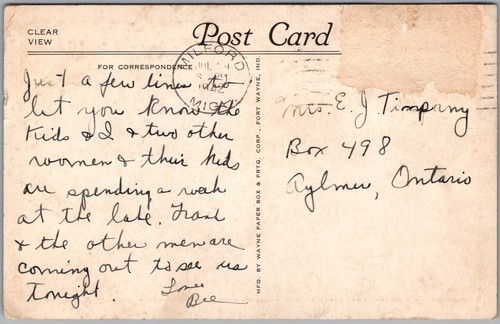 CLEAR
VIEW
Post Card
FOR CORRESPONDENCE
MILFORD
MICH
Just a few lines to
let you know the
kids & I & two other
women & their kids
are spending a week
at the lake. Frank
& the other men are
coming out to see us
tonight.
Love
Bee
MFD. BY WAYNE PAPER BOX & PRTG. CORP., FORT WAYNE, IND.
Mrs. E. J.
Box 498
Aylmer, Ontario